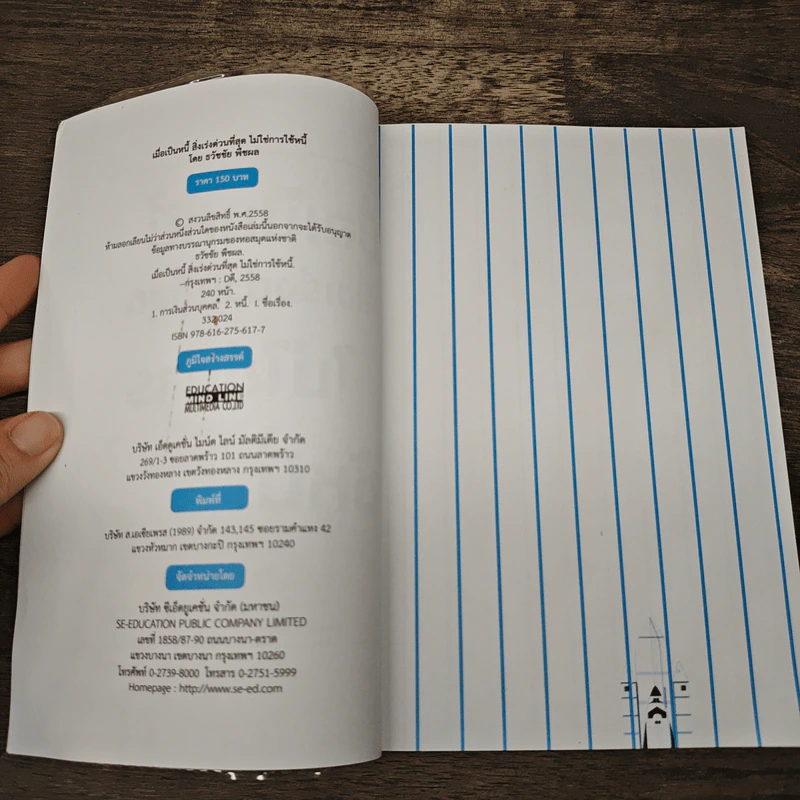 เมื่อเป็นหนี้ สิ่งเร่งด่วนที่สุด ไม่ใช่การใช้หนี้
โดย ธวัชชัย พืชผล
ราคา 150 บาท
© สงวนลิขสิทธิ์ พ.ศ.2558
ห้ามลอกเลียนไม่ว่าส่วนหนึ่งส่วนใดของหนังสือเล่มนี้นอกจากจะได้รับอนุญาต
ข้อมูลทางบรรณานุกรมของหอสมุดแห่งชาติ
ธวัชชัย พืชผล.
เมื่อเป็นหนี้ สิ่งเร่งด่วนที่สุด ไม่ใช่การใช้หนี้.
--กรุงเทพฯ : Dดี, 2558
240 หน้า.
1. การเงินส่วนบุคคล. 2. หนี้. I. ชื่อเรื่อง.
332.024
ISBN 978-616-275-617-7
ภูมิใจสร้างสรรค์
EDUCATION
MIND LINE
MULTIMEDIA CO.,LTD
บริษัท เอ็ดดูเคชั่น ไมนด์ ไลน์ มัลติมีเดีย จำกัด
269/1-3 ซอยลาดพร้าว 101 ถนนลาดพร้าว
แขวงวังทองหลาง เขตวังทองหลาง กรุงเทพฯ 10310
พิมพ์ที่
บริษัท ส.เอเซียเพรส (1989) จำกัด 143,145 ซอยรามคำแหง 42
แขวงหัวหมาก เขตบางกะปิ กรุงเทพฯ 10240
จัดจำหน่ายโดย
บริษัท ซีเอ็ดยูเคชั่น จำกัด (มหาชน)
SE-EDUCATION PUBLIC COMPANY LIMITED
เลขที่ 1858/87-90 ถนนบางนา-ตราด
แขวงบางนา เขตบางนา กรุงเทพฯ 10260
โทรศัพท์ 0-2739-8000 โทรสาร 0-2751-5999
Homepage : http://www.se-ed.com